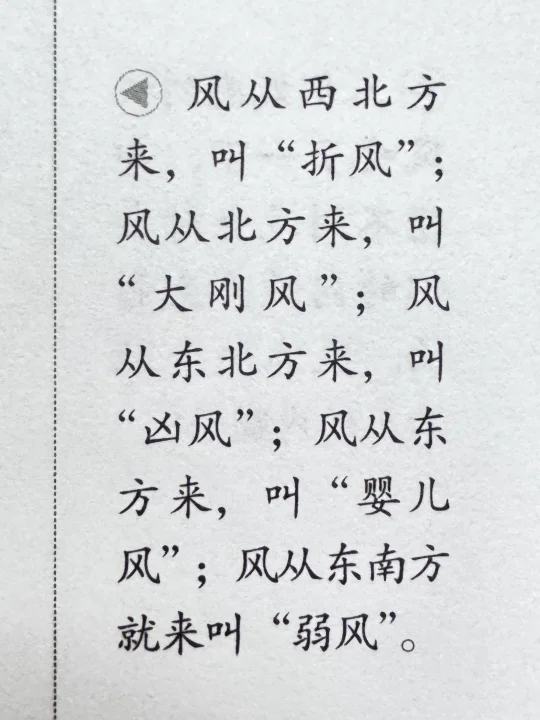 风从西北方
来，叫“折风”；
风从北方来，叫
“大刚风”；风
从东北方来，叫
“凶风”；风从东
方来，叫“婴儿
风”；风从东南方
就来叫“弱风”。